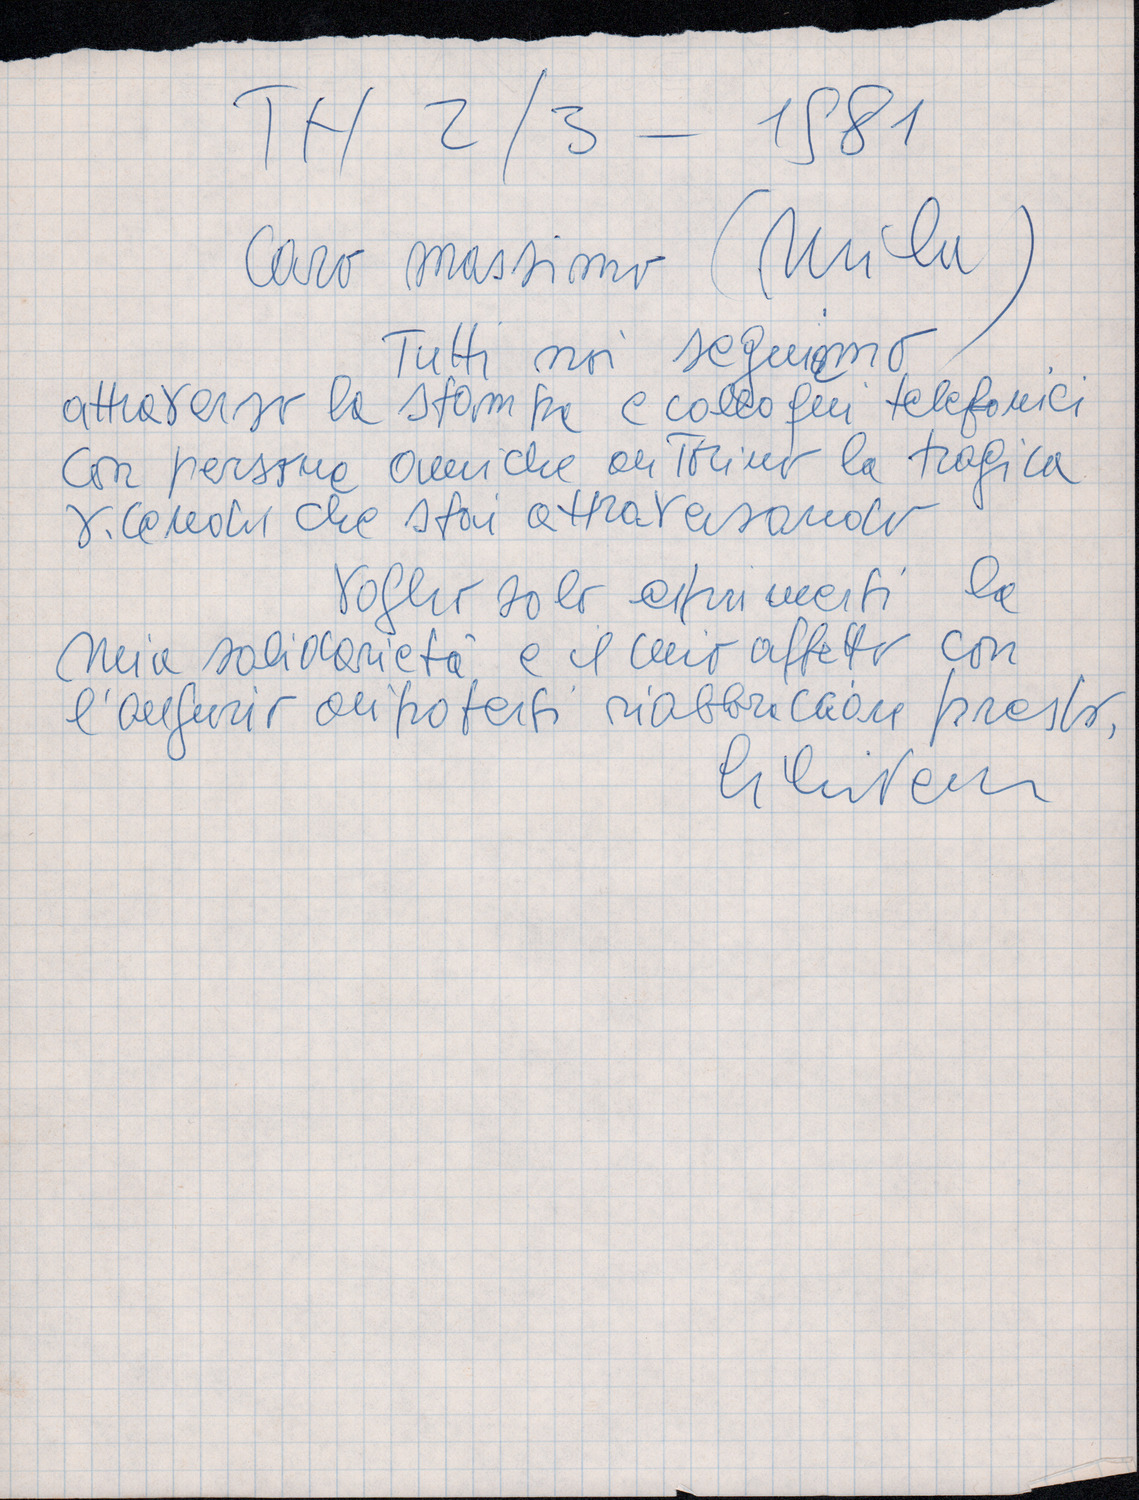 TH 2/3 — 1981
Caro Massimo (Mila)
Tutti noi seguiamo
attraverso la stampa e colloqui telefonici
con persone amiche di Torino la tragica
vicenda che stai attraversando
Voglio solo esprimerti la
mia solidarietà e il mio affetto con
l'augurio di poterti riabbracciare presto,